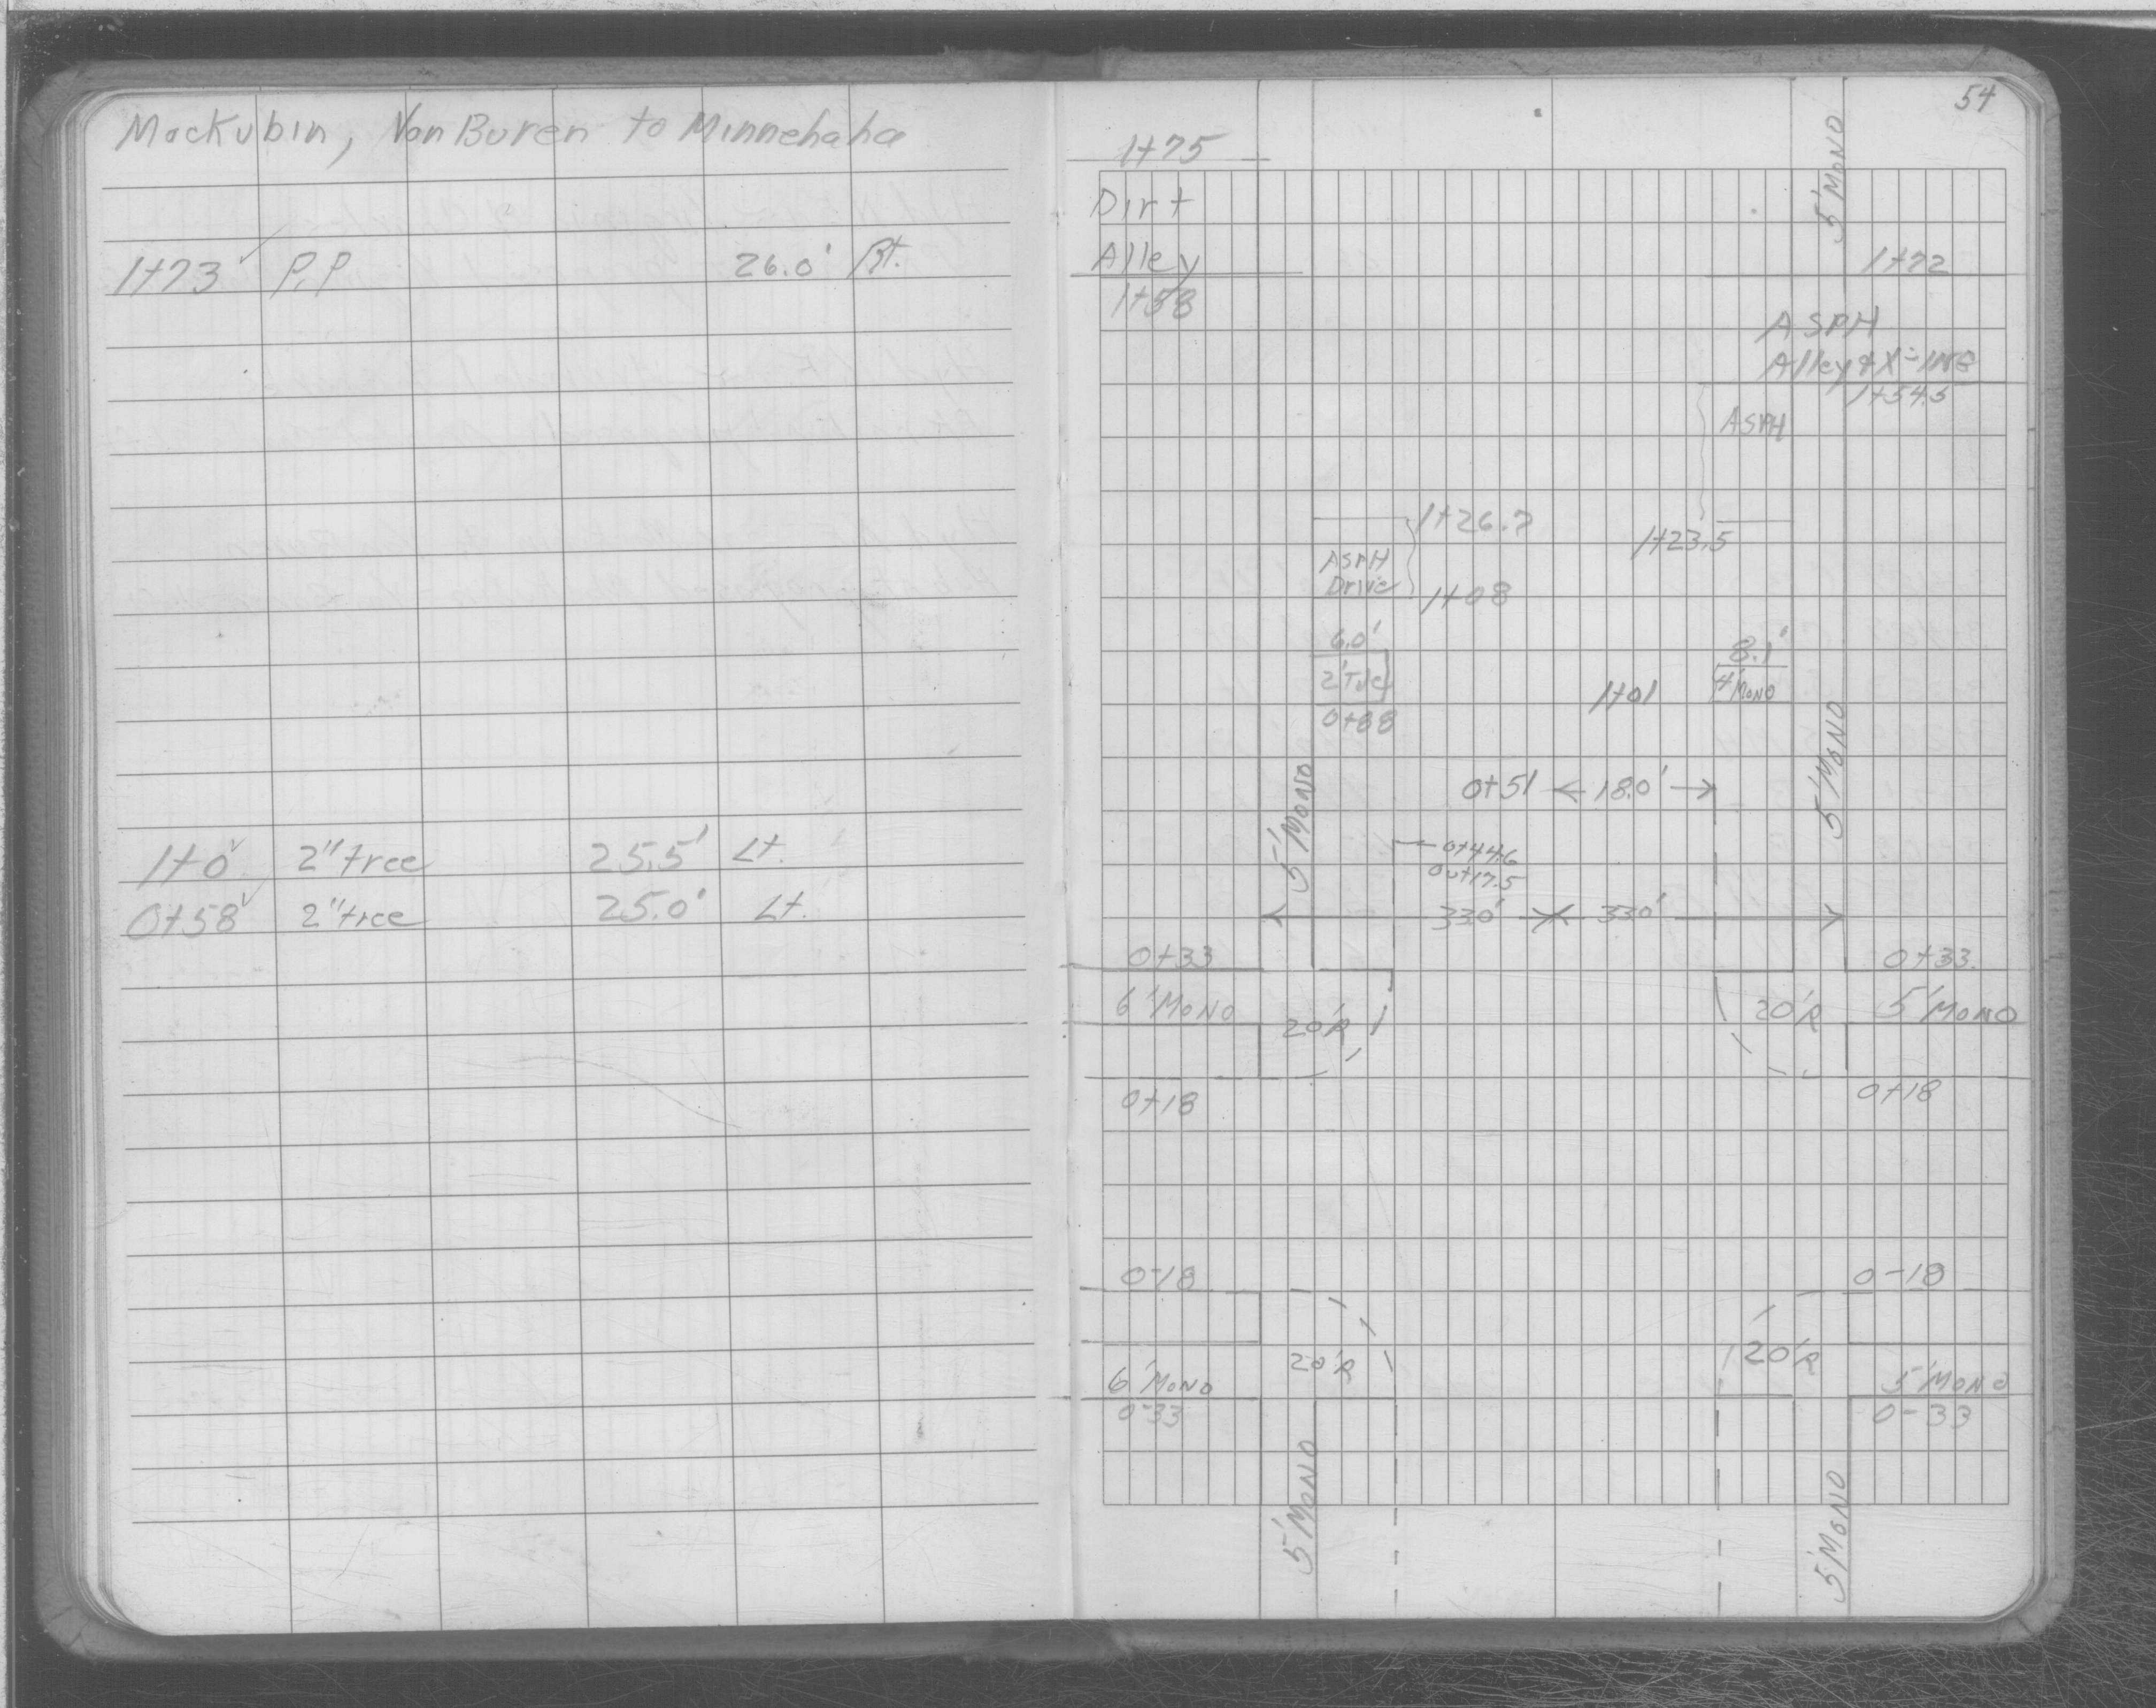 Mackubin, Van Buren to Minnehaha
1+73 P.P 26.0' Rt.
1+0 2" tree 25.5' Lt.
0+58 2" tree 25.0' Lt.
54
1+75
Dirt
Alley
1+58
5' MONO
1+72
ASPH
Alley & X-ING
1+54.5
ASPH
1+26.7
1+23.5
ASPH
Drive
1+08
6.0'
2' Tile
0+88
8.1'
4' MONO
1+01
5' MONO
5' MONO
0+51 18.0'
0+44.6
Out 17.5
33.0' 33.0'
0+33
0+33
6' MONO 20'R
20'R 5' MONO
0+18
0+18
0-18
0-18
20'R
20'R
6' MONO
5' MONO
0-33
0-33
5' MONO
5' MONO